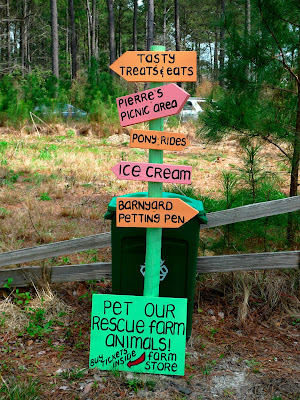 TASTY
TREATS & EATS
PIERRE'S
PICNIC AREA
PONY RIDES
ICE CREAM
BARNYARD
PETTING PEN
PET OUR
RESCUE FARM
ANIMALS!
BUY TICKETS INSIDE FARM STORE